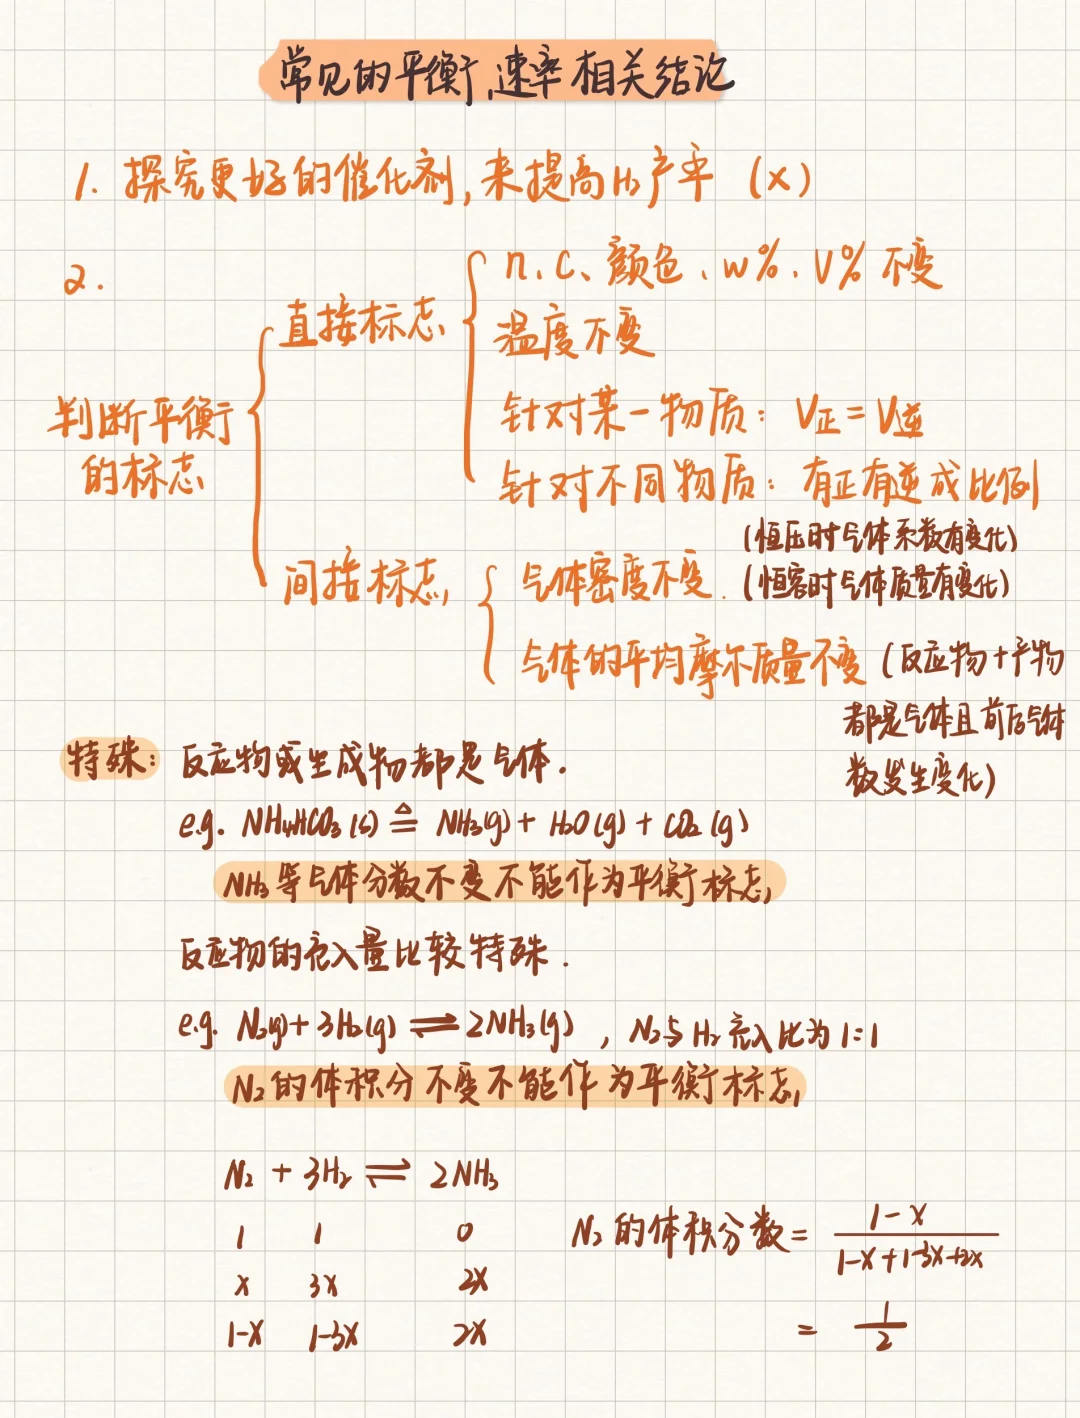 常见的平衡、速率相关结论
1. 探究更好的催化剂,来提高H₂产率 (×)
2.
判断平衡的标志
直接标志
n、c、颜色、w%、V% 不变
温度不变
针对某一物质: V正=V逆
针对不同物质: 有正有逆成比例
间接标志
气体密度不变
(恒压时气体系数有变化)
(恒容时气体质量有变化)
气体的平均摩尔质量不变 (反应物+产物
都是气体且前后气体
数发生变化)
特殊: 反应物或生成物都是气体.
e.g. NH₄HCO₃(s) ≜ NH₃(g) + H₂O(g) + CO₂(g)
NH₃等气体分数不变不能作为平衡标志
反应物的充入量比较特殊.
e.g. N₂(g)+3H₂(g) ⇌ 2NH₃(g) , N₂与H₂充入比为1:1
N₂的体积分不变不能作为平衡标志
N₂ + 3H₂ ⇌ 2NH₃
1 1 0
x 3x 2x
1-x 1-3x 2x
N₂的体积分数= (1-x)/(1-x+1-3x+2x)
= 1/2